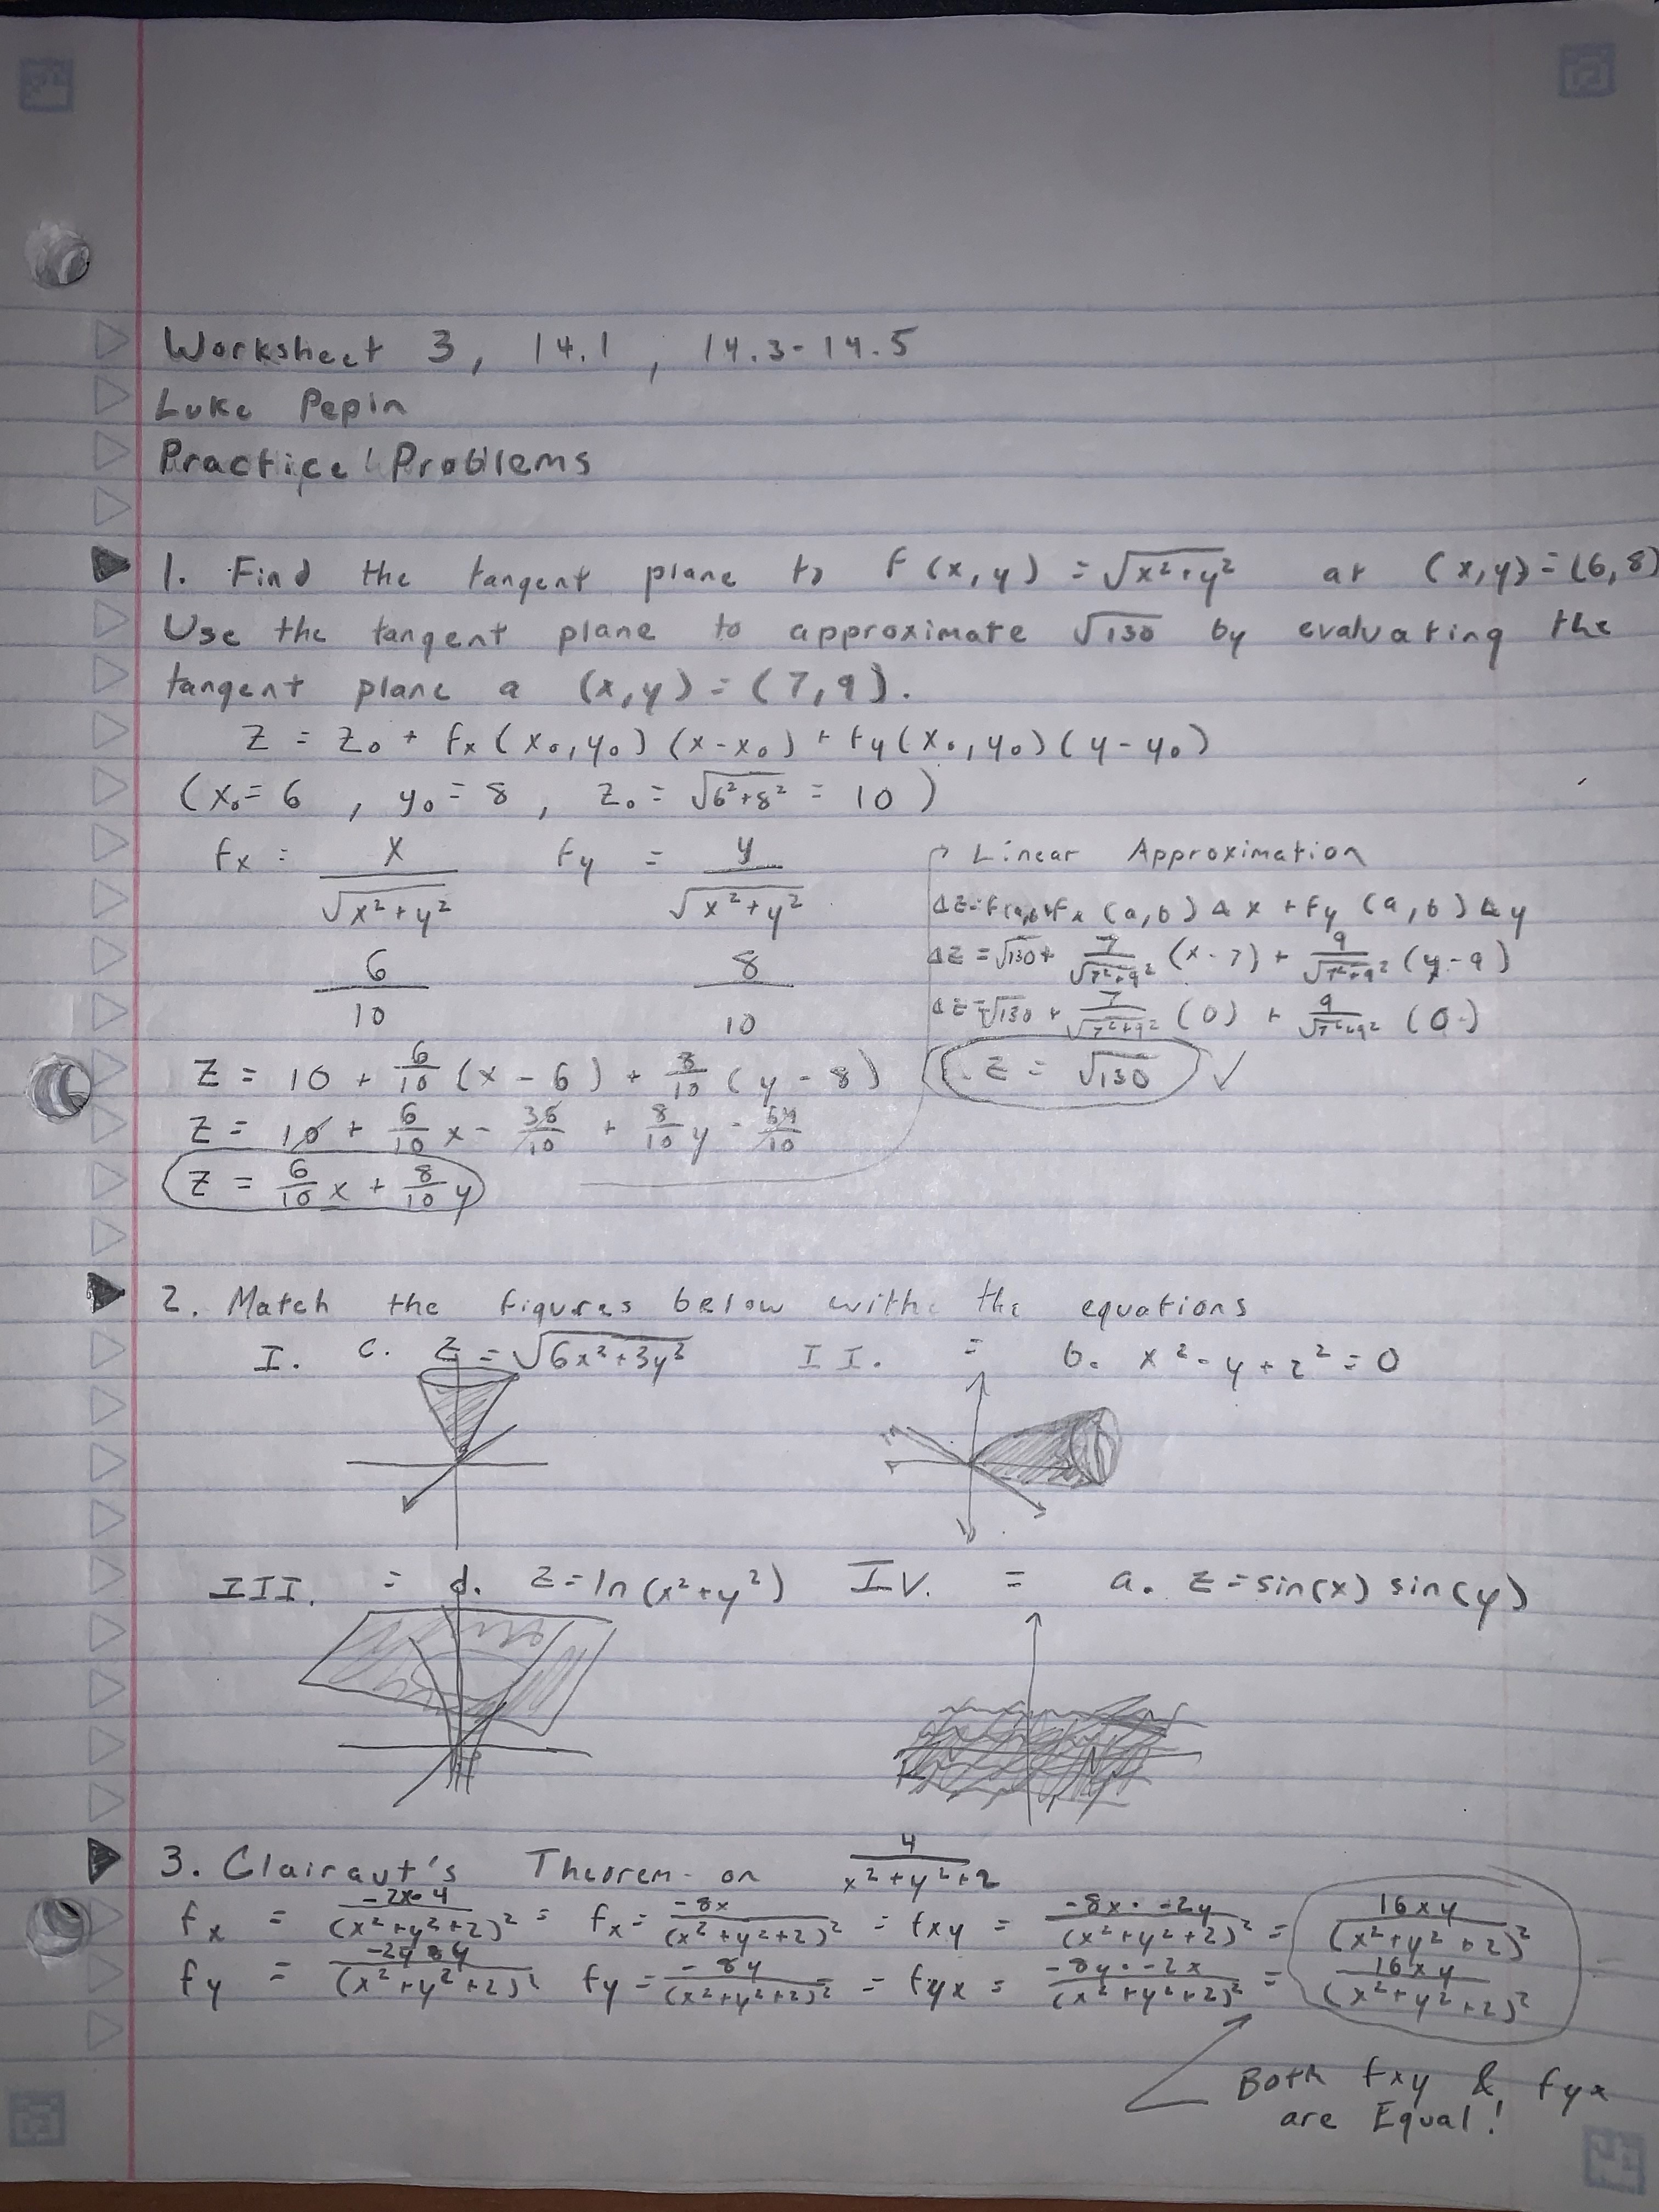 Worksheet 3, 14.1, 14.3-14.5
Luke Pepin
Practice Problems
1. Find the tangent plane to f(x,y) = √x²+y² at (x,y)=(6,8)
Use the tangent plane to approximate √130 by evaluating the
tangent plane a (x,y)=(7,9).
z = z₀ + fx(x₀,y₀)(x-x₀) + fy(x₀,y₀)(y-y₀)
(x₀=6, y₀=8, z₀=√6²+8² = 10)
fx = x/√x²+y² fy = y/√x²+y²
6/10 8/10
z = 10 + 6/10(x-6) + 8/10(y-8)
z = 10 + 6/10x - 36/10 + 8/10y - 64/10
z = 6/10x + 8/10y
Linear Approximation
Δz=f(a,b)+fx(a,b)Δx + fy(a,b)Δy
Δz=√130+ 7/√7²+9²(x-7) + 9/√7²+9²(y-9)
Δz=√130 + 7/√7²+9²(0) + 9/√7²+9²(0)
z = √130 ✓
2. Match the figures below withe the equations
I. c. z=√6x²+3y² II. = b. x²-y+z²=0
III. = d. z=ln(x²+y²) IV. = a. z=sin(x) sin(y)
3. Clairaut's Theorem on 4/x²+y²+2
fx = -2x·4/(x²+y²+2)² = fx = -8x/(x²+y²+2)² = fxy = -8x·-2y/(x²+y²+2)² = 16xy/(x²+y²+2)²
fy = /(x²+y²+2)² fy = -8y/(x²+y²+2)² = fyx = -8y·-2x/(x²+y²+2)² = 16xy/(x²+y²+2)²
Both fxy & fyx
are Equal!